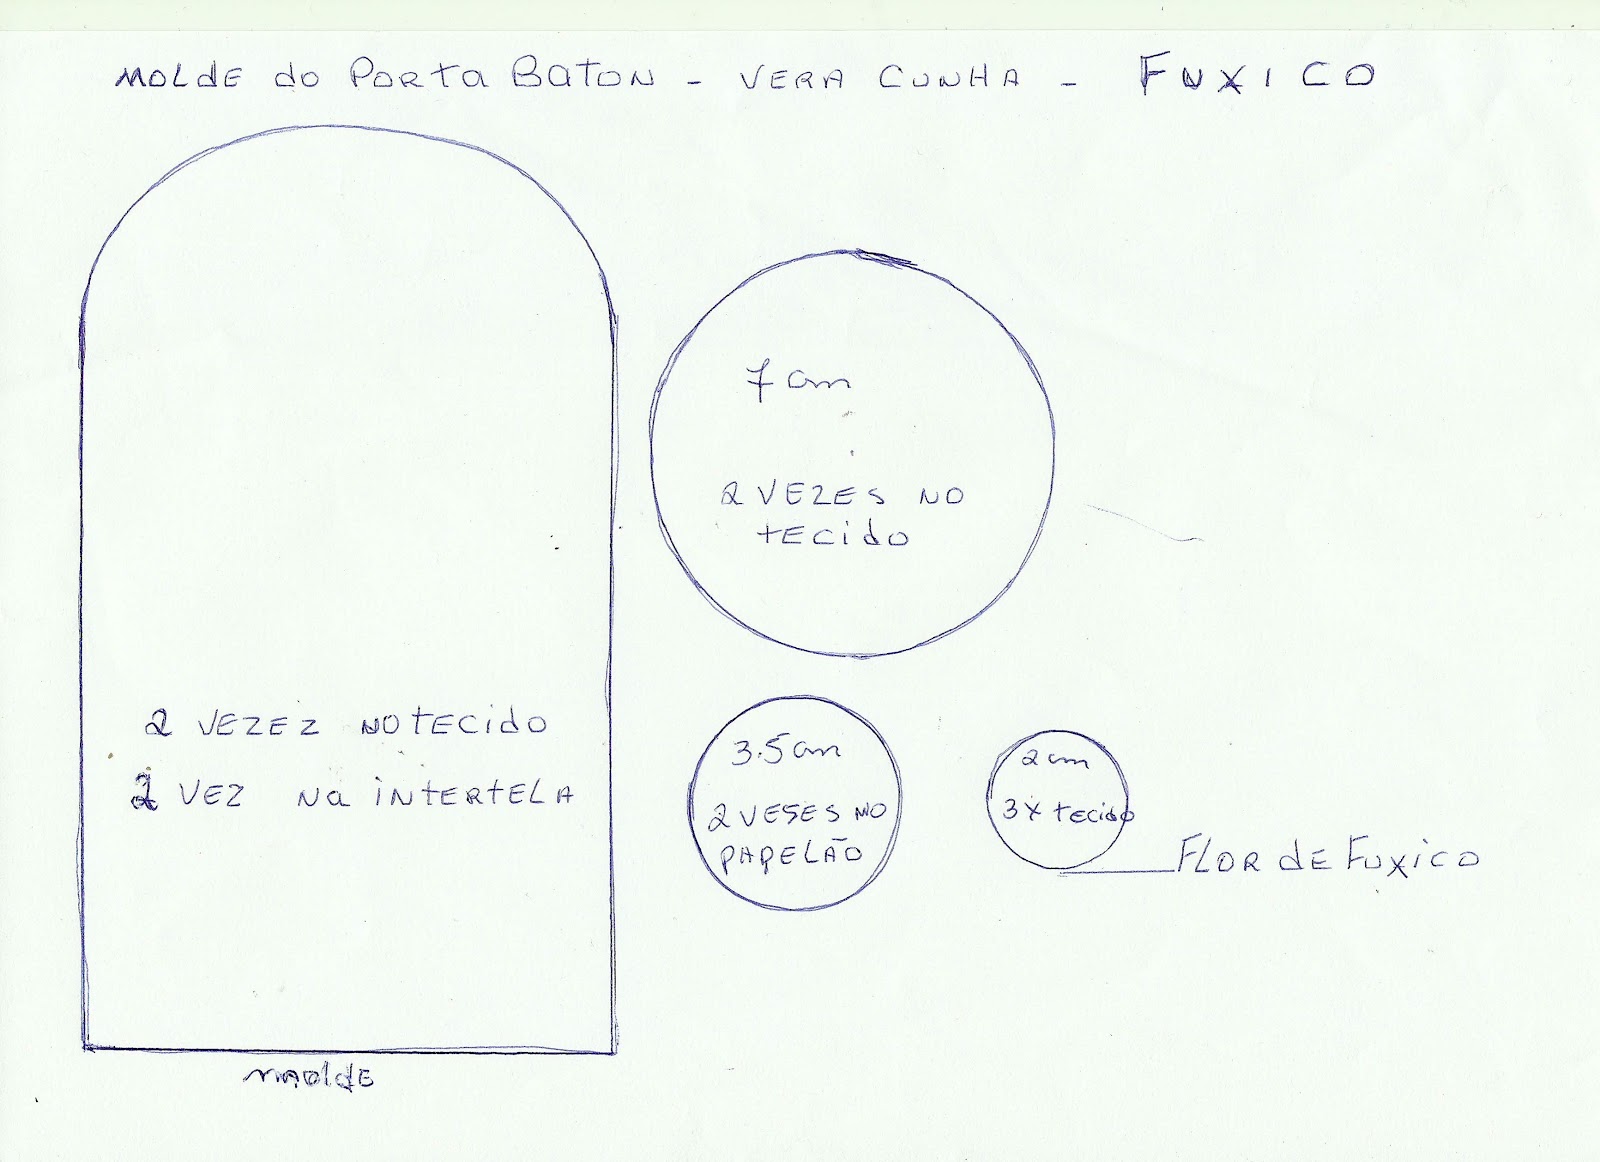 MOLDE do PORTA BATON - VERA CUNHA - FUXICO
7 cm
2 VEZES NO
tECido
2 VEZEZ NO tECido
2 VEZ Na iNTERTELA
3.5 cm
2 VESES NO
PAPELÃO
2 cm
3x tECido
FLOR dE FUXiCO
MOldE